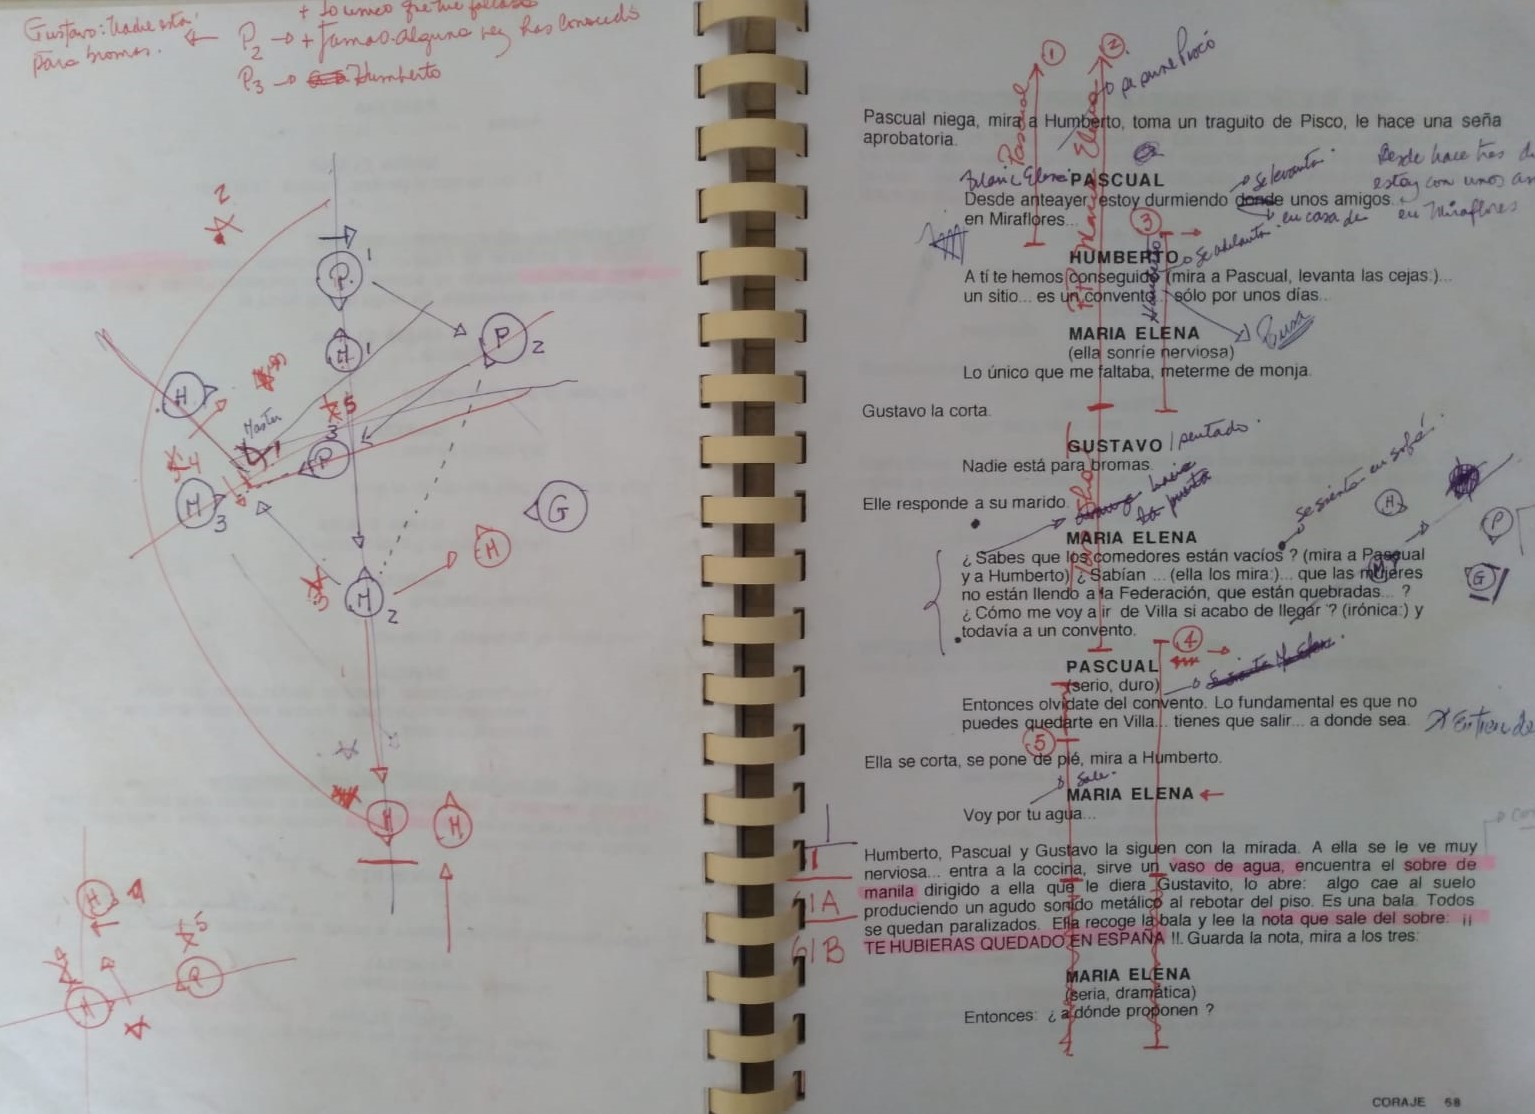 + lo único que me faltaba
Gustavo: Nadie está
para bromas.
P2 → + Jamas alguna vez has conocido
P3 → Humberto
2
1
P
H
1
P
2
H
3
5
Master
P
4
M
3
G
H
3
M
2
H
H
H
4
5
4
P
H
1
2
Pascual
Maria Elena
se sirve Pisco
Pascual niega, mira a Humberto, toma un traguito de Pisco, le hace una seña
aprobatoria.
Maria Elena
PASCUAL
se levanta.
Desde hace tres
Desde anteayer, estoy durmiendo donde unos amigos...
estoy con unos
en Miraflores...
en casa de
en Miraflores
3
HUMBERTO
se adelanta.
A tí te hemos conseguido (mira a Pascual, levanta las cejas:)...
un sitio... es un convento... sólo por unos días...
Humberto
MARIA ELENA
(ella sonríe nerviosa)
Lo único que me faltaba, meterme de monja.
Gustavo la corta.
GUSTAVO
sentado.
Nadie está para bromas.
Elle responde a su marido.
hacia
la puerta
se sienta en sofá.
MARIA ELENA
¿ Sabes que los comedores están vacíos ? (mira a Pascual
y a Humberto) ¿ Sabían ... (ella los mira:)... que las mujeres
no están llendo a la Federación, que están quebradas... ?
¿ Cómo me voy a ir de Villa si acabo de llegar ? (irónica:) y
todavía a un convento.
H
P
M
G
4
PASCUAL
(serio, duro)
Entonces olvídate del convento. Lo fundamental es que no
puedes quedarte en Villa... tienes que salir... a donde sea.
5
Ella se corta, se pone de pié, mira a Humberto.
sale.
MARIA ELENA
Voy por tu agua...
Humberto, Pascual y Gustavo la siguen con la mirada. A ella se le ve muy
nerviosa... entra a la cocina, sirve un vaso de agua, encuentra el sobre de
manila dirigido a ella que le diera Gustavito, lo abre: algo cae al suelo
produciendo un agudo sonido metálico al rebotar del piso. Es una bala. Todos
se quedan paralizados. Ella recoge la bala y lee la nota que sale del sobre: ¡¡
TE HUBIERAS QUEDADO EN ESPAÑA !!. Guarda la nota, mira a los tres:
61A
61B
MARIA ELENA
(seria, dramática)
Entonces: ¿ a dónde proponen ?
CORAJE 68